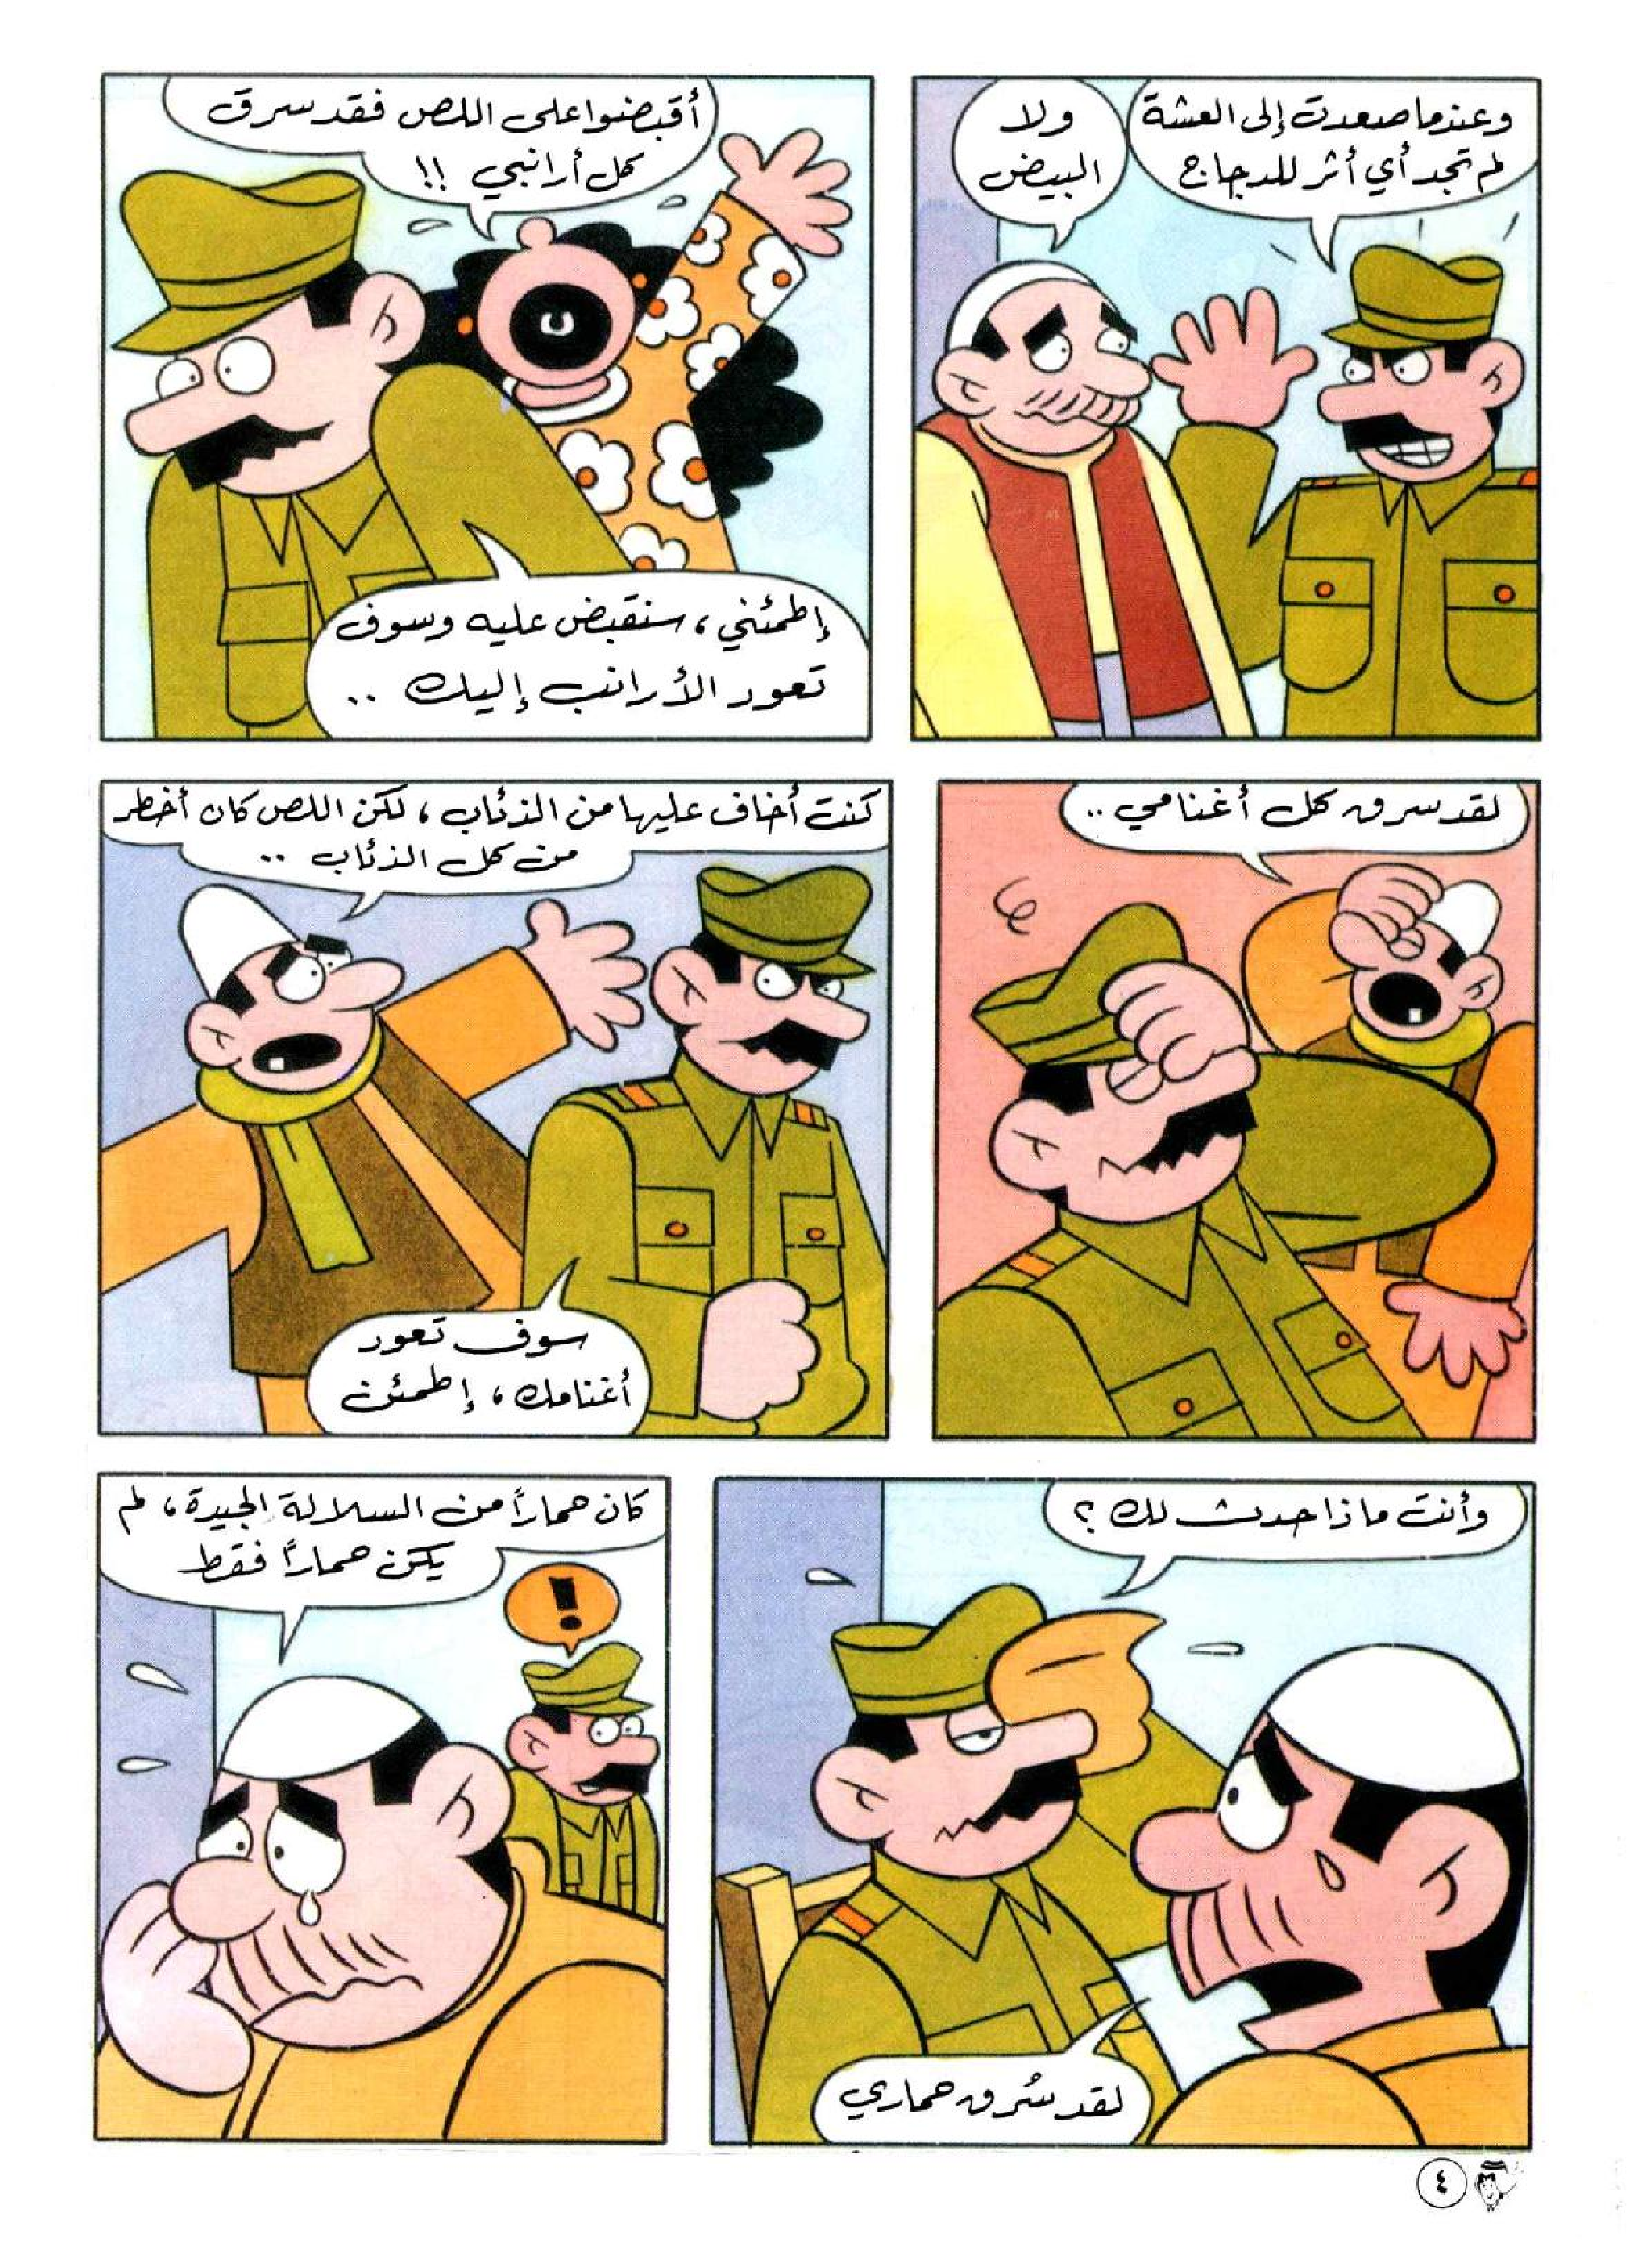 وعندما صعدت إلى العشة
لم تجد أي أثر للدجاج
ولا
البيض
أقبضوا على اللص فقد سرق
كل أرانبي !!
إطمئني، سنقبض عليه وسوف
تعود الأرانب إليك ..
لقد سرق كل أغنامي ..
كنت أخاف عليها من الذئاب، لكن اللص كان أخطر
من كل الذئاب ..
سوف تعود
أغنامك، إطمئن
وأنت ماذا حدث لك ؟
لقد سُرق حماري
كان حماراً من السلالة الجيدة، لم
يكن حماراً فقط
!
٤